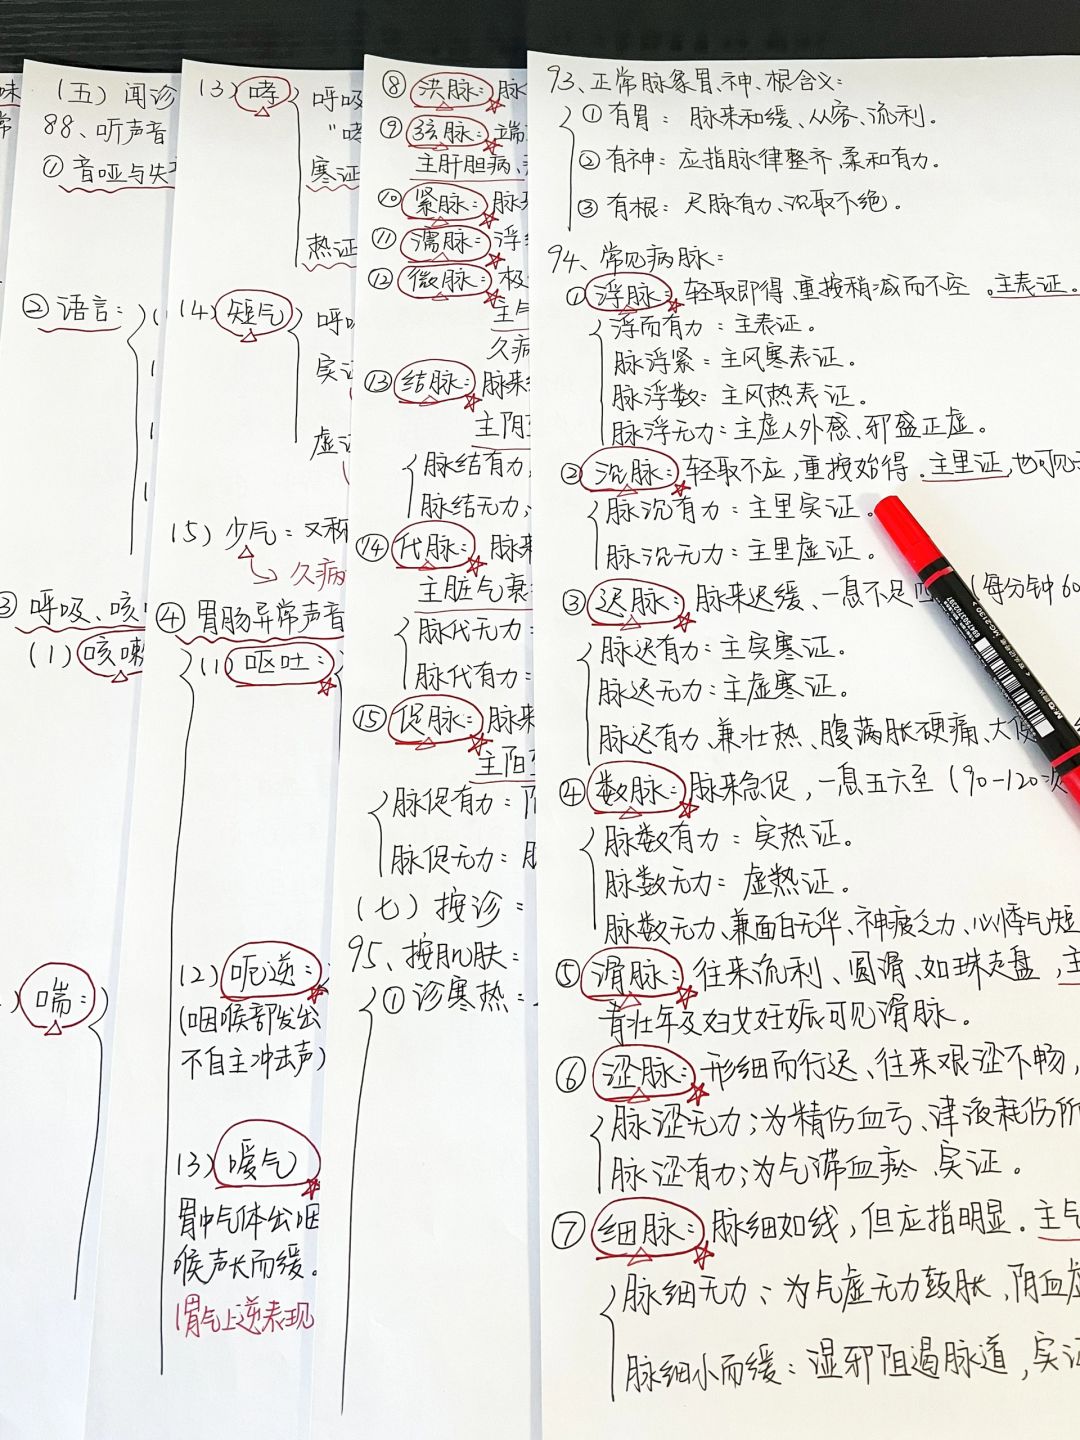 味
常
(五)闻诊
88、听声音
①音哑与失
②语言：
③呼吸、咳
(1)咳嗽
喘：
(3)哮
呼吸
"哮
寒证
热证
(4)短气
呼吸
实证
虚证
(5)少气：又称
久病
④胃肠异常声音
(1)呕吐：
(2)呃逆：
(咽喉部发出
不自主冲击声)
(3)嗳气
胃中气体出咽
喉声长而缓。
(胃气上逆表现
⑧洪脉：脉
⑨弦脉：端
主肝胆病、
⑩紧脉：脉
⑪濡脉：浮
⑫微脉：极
主气
久病
⑬结脉：脉来
主阴
脉结有力
脉结无力
⑭代脉：脉来
主脏气衰
脉代无力：
脉代有力：
⑮促脉：脉来
主阳
脉促有力：
脉促无力：
(七)按诊：
95、按肌肤：
①诊寒热：
93、正常脉象胃、神、根含义：
①有胃：脉来和缓、从容、流利。
②有神：应指脉律整齐、柔和有力。
③有根：尺脉有力、沉取不绝。
94、常见病脉：
①浮脉：轻取即得、重按稍减而不空。主表证。
浮而有力：主表证。
脉浮紧：主风寒表证。
脉浮数：主风热表证。
脉浮无力：主虚人外感、邪盛正虚。
②沉脉：轻取不应，重按始得。主里证，也可见
脉沉有力：主里实证。
脉沉无力：主里虚证。
③迟脉：脉来迟缓、一息不足四 (每分钟60
脉迟有力：主实寒证。
脉迟无力：主虚寒证。
脉迟有力、兼壮热、腹满胀硬痛、大便
④数脉：脉来急促，一息五六至(90-120次
脉数有力：实热证。
脉数无力：虚热证。
脉数无力、兼面白无华、神疲乏力、心悸气短
⑤滑脉：往来流利、圆滑、如珠走盘，主
青壮年及妇女妊娠可见滑脉。
⑥涩脉：形细而行迟、往来艰涩不畅，
脉涩无力；为精伤血亏、津液耗伤所
脉涩有力；为气滞血瘀、实证。
⑦细脉：脉细如线，但应指明显。主气
脉细无力：为气虚无力鼓胀、阴血虚
脉细小而缓：湿邪阻遏脉道，实证
M&G晨光
MG-2130